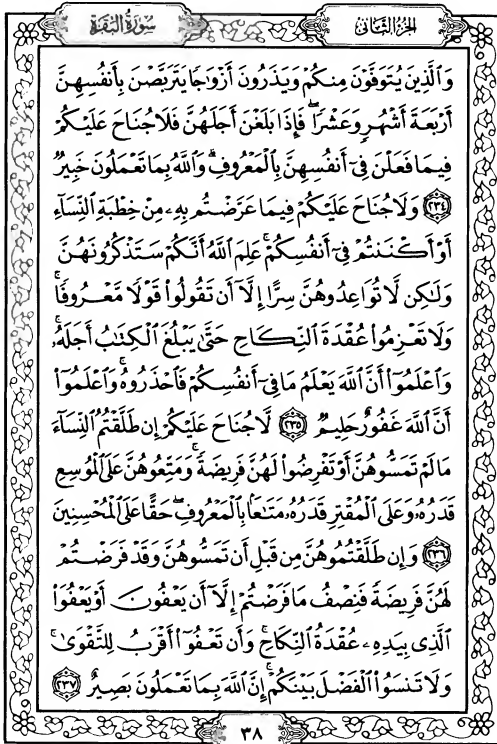 سُورَةُ البَقَرَةِ
الجزء الثاني
وَٱلَّذِينَ يُتَوَفَّوْنَ مِنكُمْ وَيَذَرُونَ أَزْوَٰجًا يَتَرَبَّصْنَ بِأَنفُسِهِنَّ
أَرْبَعَةَ أَشْهُرٍ وَعَشْرًا ۖ فَإِذَا بَلَغْنَ أَجَلَهُنَّ فَلَا جُنَاحَ عَلَيْكُمْ
فِيمَا فَعَلْنَ فِىٓ أَنفُسِهِنَّ بِٱلْمَعْرُوفِ ۗ وَٱللَّهُ بِمَا تَعْمَلُونَ خَبِيرٌ
٢٣٤ وَلَا جُنَاحَ عَلَيْكُمْ فِيمَا عَرَّضْتُم بِهِۦ مِنْ خِطْبَةِ ٱلنِّسَآءِ
أَوْ أَكْنَنتُمْ فِىٓ أَنفُسِكُمْ ۚ عَلِمَ ٱللَّهُ أَنَّكُمْ سَتَذْكُرُونَهُنَّ
وَلَٰكِن لَّا تُوَاعِدُوهُنَّ سِرًّا إِلَّآ أَن تَقُولُوا۟ قَوْلًا مَّعْرُوفًا ۚ
وَلَا تَعْزِمُوا۟ عُقْدَةَ ٱلنِّكَاحِ حَتَّىٰ يَبْلُغَ ٱلْكِتَٰبُ أَجَلَهُۥ ۚ
وَٱعْلَمُوٓا۟ أَنَّ ٱللَّهَ يَعْلَمُ مَا فِىٓ أَنفُسِكُمْ فَٱحْذَرُوهُ ۚ وَٱعْلَمُوٓا۟
أَنَّ ٱللَّهَ غَفُورٌ حَلِيمٌ ٢٣٥ لَّا جُنَاحَ عَلَيْكُمْ إِن طَلَّقْتُمُ ٱلنِّسَآءَ
مَا لَمْ تَمَسُّوهُنَّ أَوْ تَفْرِضُوا۟ لَهُنَّ فَرِيضَةً ۚ وَمَتِّعُوهُنَّ عَلَى ٱلْمُوسِعِ
قَدَرُهُۥ وَعَلَى ٱلْمُقْتِرِ قَدَرُهُۥ مَتَٰعًۢا بِٱلْمَعْرُوفِ ۖ حَقًّا عَلَى ٱلْمُحْسِنِينَ
٢٣٦ وَإِن طَلَّقْتُمُوهُنَّ مِن قَبْلِ أَن تَمَسُّوهُنَّ وَقَدْ فَرَضْتُمْ
لَهُنَّ فَرِيضَةً فَنِصْفُ مَا فَرَضْتُمْ إِلَّآ أَن يَعْفُونَ أَوْ يَعْفُوَا۟
ٱلَّذِى بِيَدِهِۦ عُقْدَةُ ٱلنِّكَاحِ ۚ وَأَن تَعْفُوٓا۟ أَقْرَبُ لِلتَّقْوَىٰ ۚ
وَلَا تَنسَوُا۟ ٱلْفَضْلَ بَيْنَكُمْ ۚ إِنَّ ٱللَّهَ بِمَا تَعْمَلُونَ بَصِيرٌ ٢٣٧
٣٨